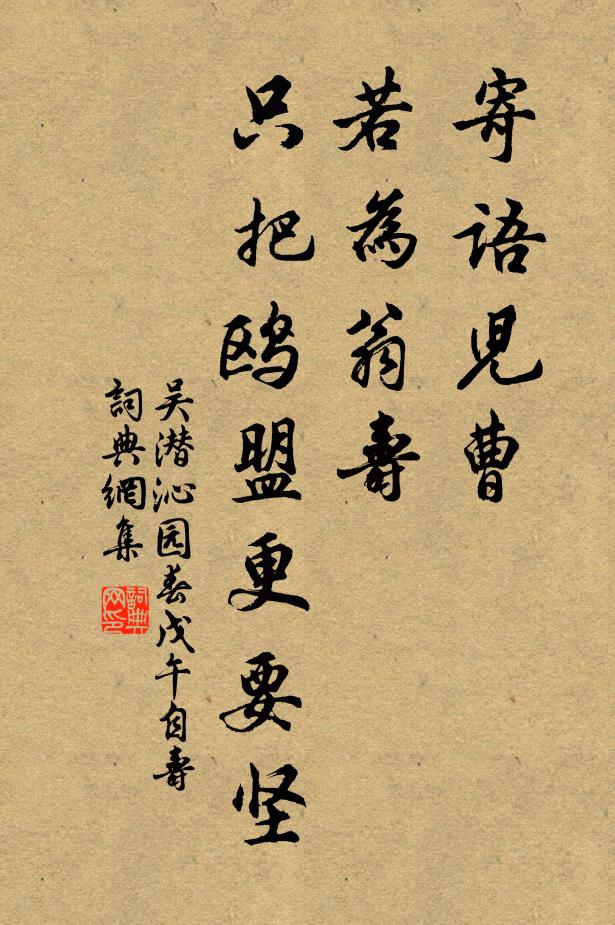 寄語児曹
若為翁壽
只把鸥盟更要坚
吴潜沁园春戊午自壽
詞典網集
詞典網印